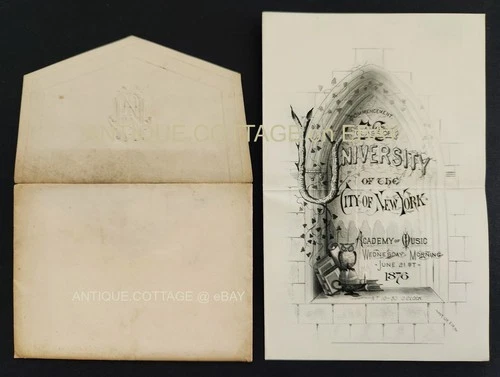 ANTIQUE COTTAGE on eBay
COMMENCEMENT
UNIVERSITY
OF THE
CITY OF NEW YORK.
ACADEMY OF MUSIC
WEDNESDAY MORNING
JUNE 21ST
1876
AT 10-30 O'CLOCK
ANTIQUE COTTAGE @ eBAY